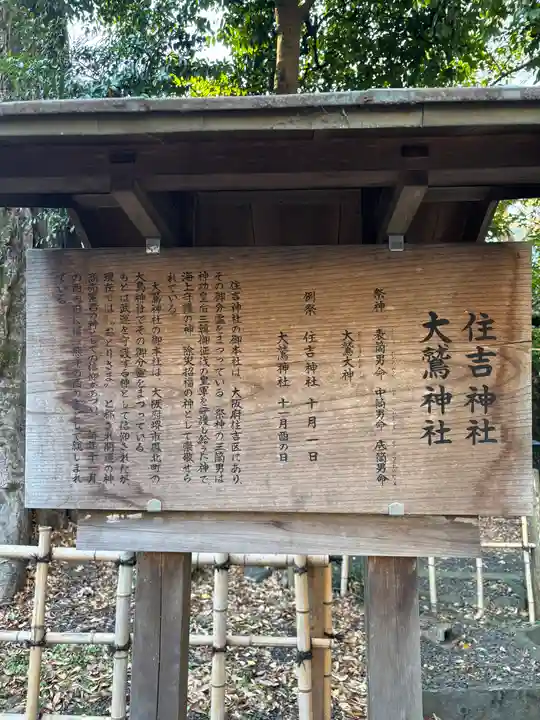 住吉神社
大鷲神社
祭神 表筒男命 中筒男命 底筒男命
大鷲大神
例祭 住吉神社 十月一日
大鷲神社 十一月酉の日
住吉神社の御本社は、大阪府住吉区にあり、
その御分霊をまつっている。祭神の三筒男は
神功皇后三韓御征伐の皇軍を守護し給うた神で
海上守護の神、除災招福の神として崇敬せら
れている。
大鷲神社の御本社は、大阪府堺市鳳北町の
大鳥神社でその御分霊をまつっている。
もとは武運を守護する神として信仰されたが、
現在では「おとりさま」と称され開運の神
商売繁昌の神としての信仰があつい。毎年十一月
の酉の日には
として賑しまれ
ている。